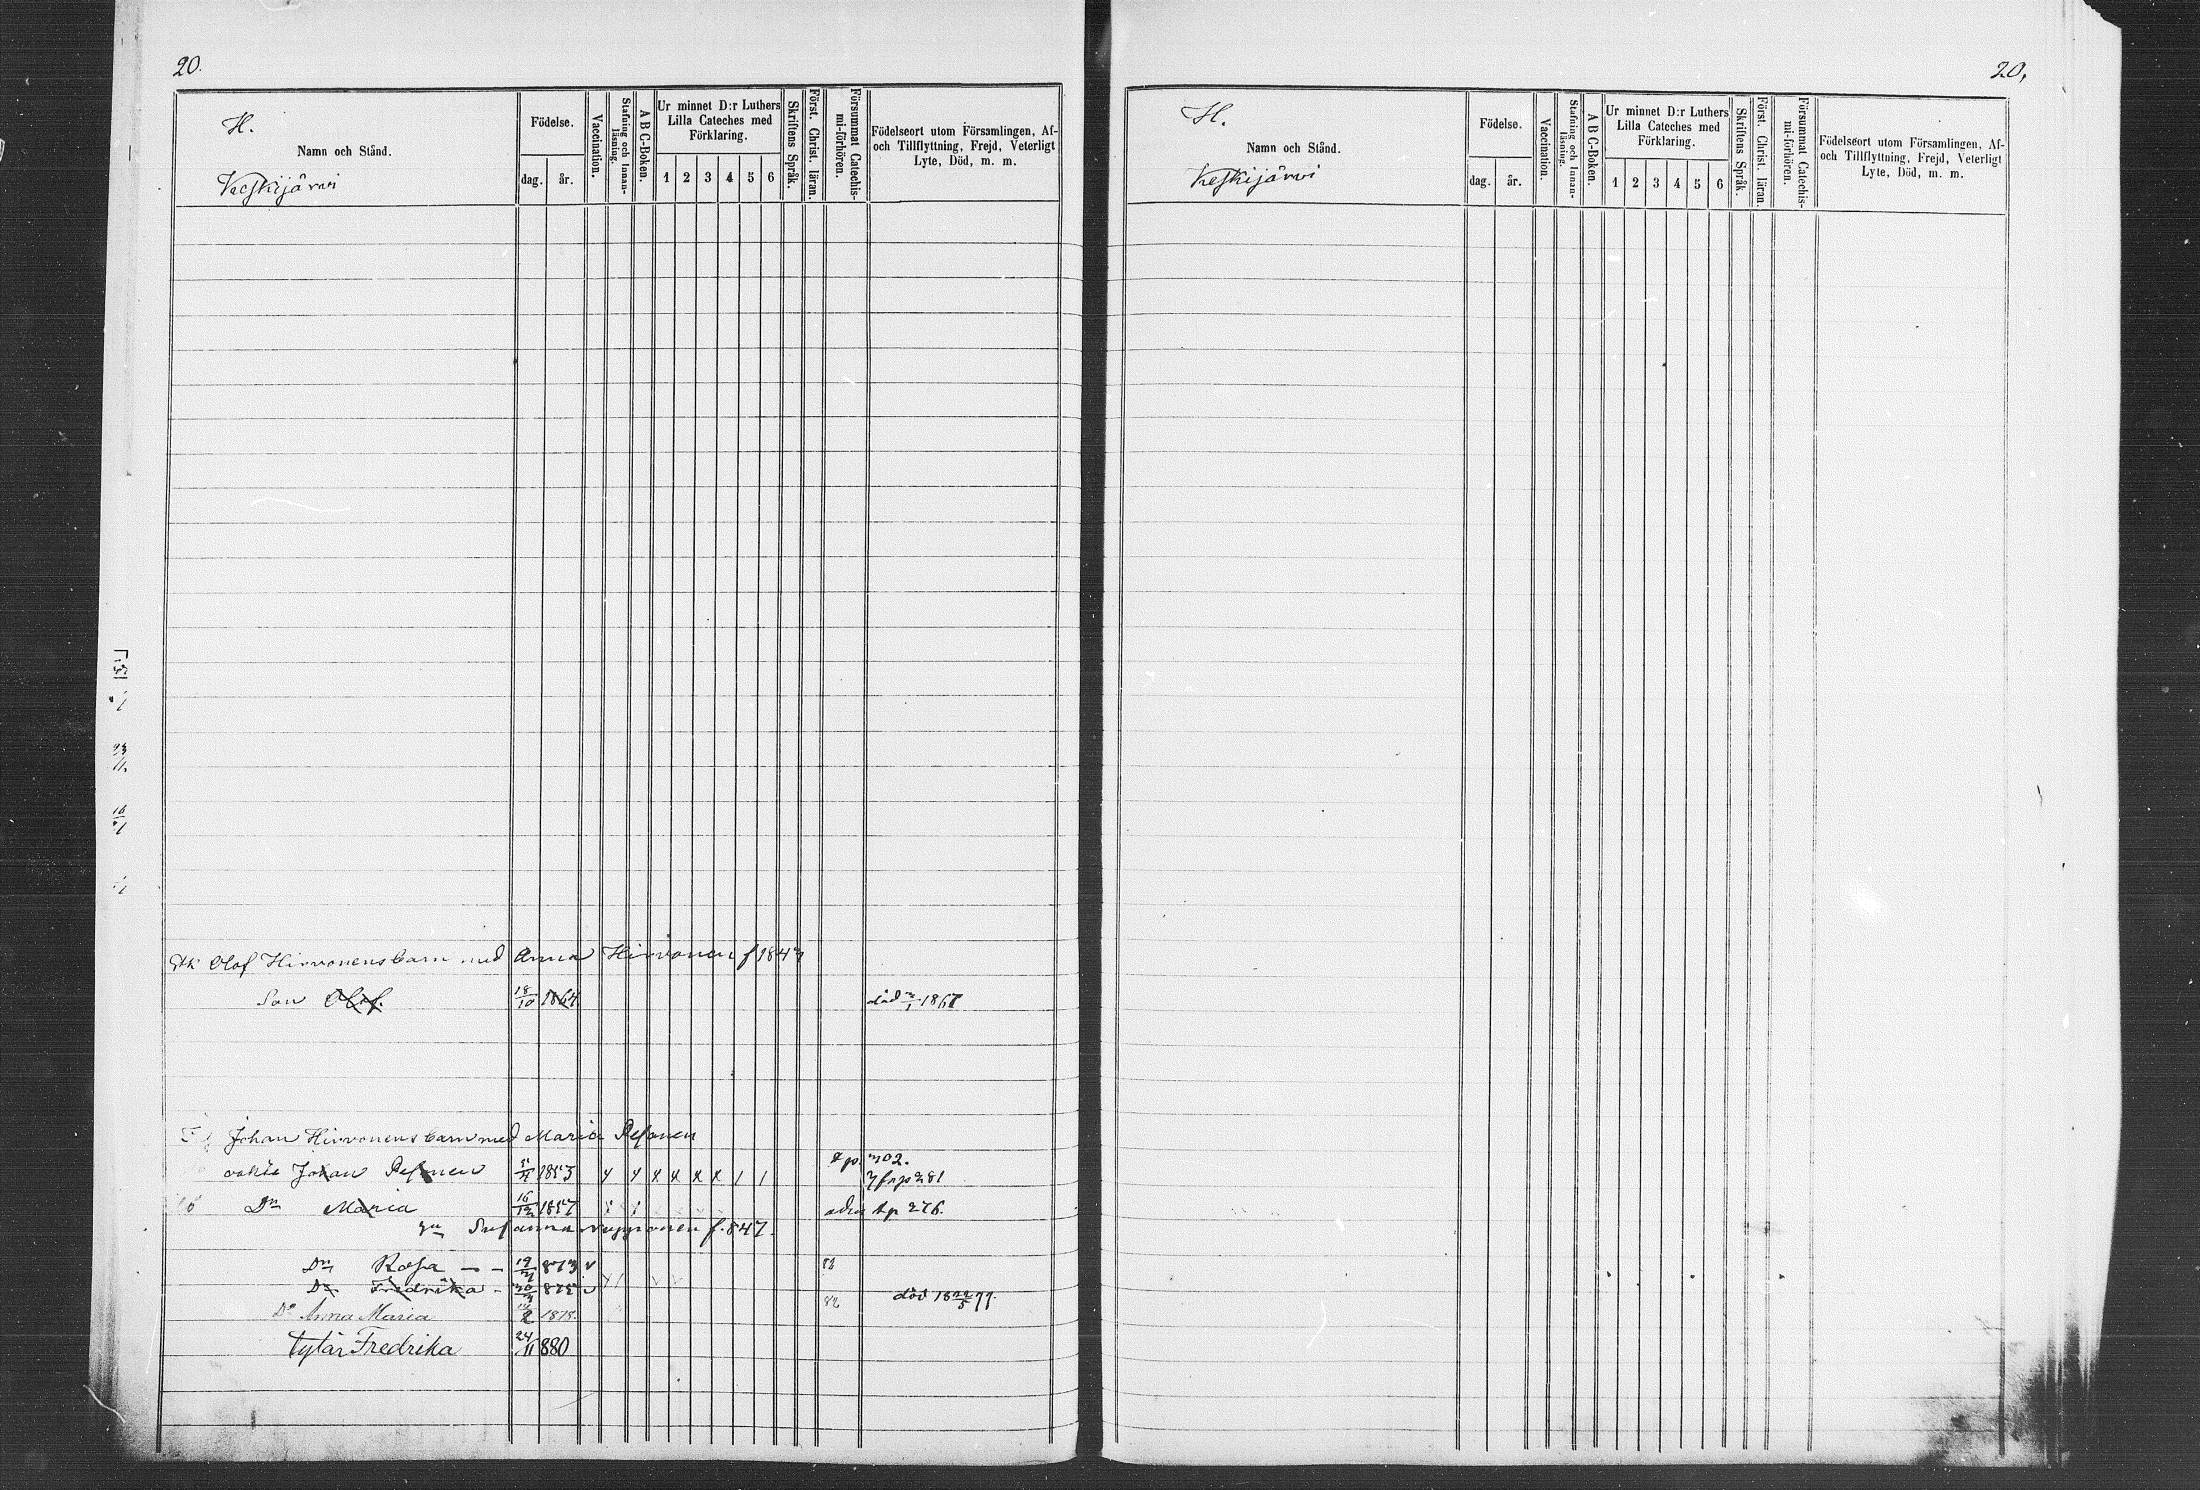 20.
H.
Namn och Stånd.
Keskijärvi
Födelse.
dag. år.
Vaccination.
Stafning och Innan-läsning.
A B C-Boken.
Ur minnet D:r Luthers Lilla Cateches med Förklaring.
1 2 3 4 5 6
Skriftens Språk.
Först. Christ. läran.
Försummat Catechis-mi-förhören.
Födelseort utom Församlingen, Af- och Tillflyttning, Frejd, Veterligt Lyte, Död, m. m.
Olof Hirvonens barn med Anna Hirvonen f 1843
Son Olof. 18/10 1864. död 1867
Johan Hirvonens barn med Maria Pesonen
302.
Johan Pesonen 1853 x x x x x x 1 1 281
Dr Maria 16/12 1857 tp 276.
Susanna f. 847.
Dr Rosa - - 19 873 v
Dr Fredrika - 875 v död 18 22/5 77.
Dr Anna Maria 2 1878. 82
tytär Fredrika 24/11 880
20.
H.
Namn och Stånd.
Keskijärvi
Födelse.
dag. år.
Vaccination.
Stafning och Innan-läsning.
A B C-Boken.
Ur minnet D:r Luthers Lilla Cateches med Förklaring.
1 2 3 4 5 6
Skriftens Språk.
Först. Christ. läran.
Försummat Catechis-mi-förhören.
Födelseort utom Församlingen, Af- och Tillflyttning, Frejd, Veterligt Lyte, Död, m. m.